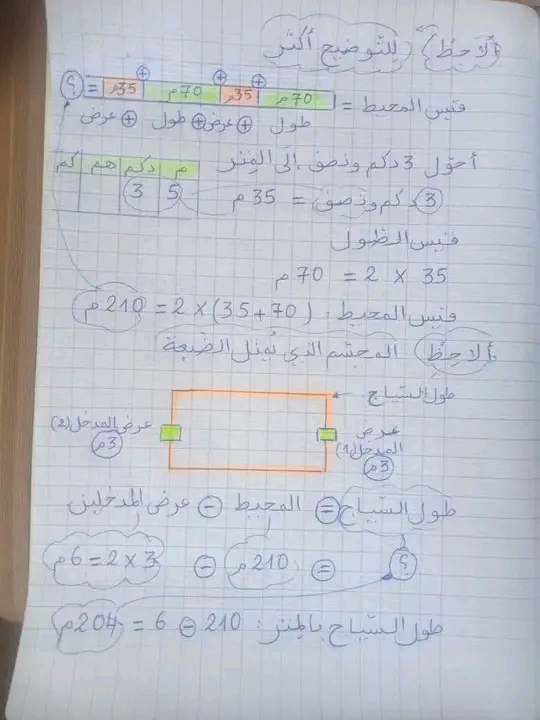 ألاحظ (للتوضيح أكثر)
قيس المحيط = 70م ⊕ 35م ⊕ 70م ⊕ 35م = ؟
طول ⊕ عرض ⊕ طول ⊕ عرض
أحول 3 دكم ونصف إلى المتر
3 دكم ونصف = 35 م
م دكم هم كم
5 3
قيس الطول
35 × 2 = 70 م
قيس المحيط: (70 + 35) × 2 = 210م
ألاحظ المجسم الذي يمثل الضيعة
طول السياج
عرض المدخل (1) 3م
عرض المدخل (2) 3م
طول السياج = المحيط − عرض المدخلين
؟ = 210م − 3 × 2 = 6م
طول السياج بالمتر: 210 − 6 = 204م